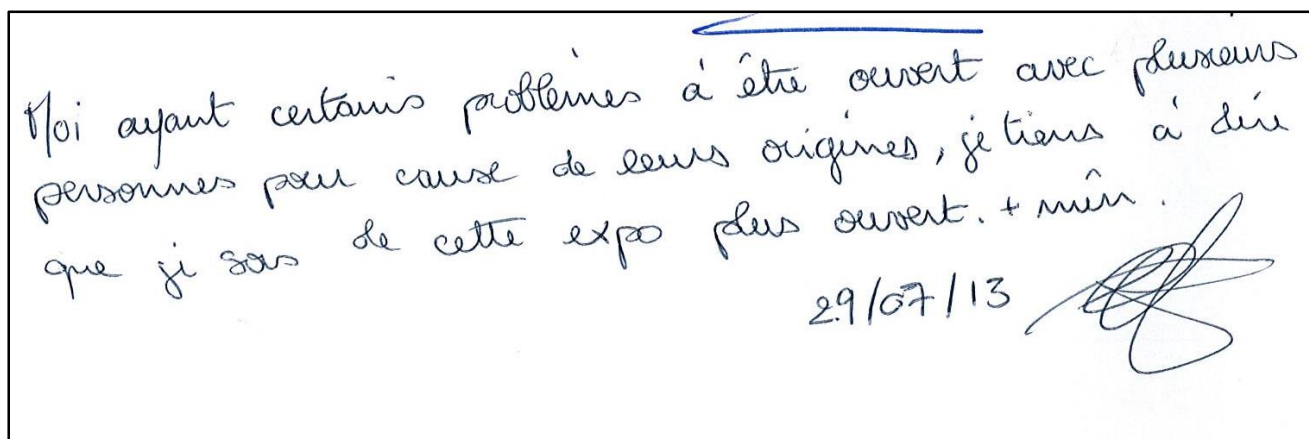 Moi ayant certains problèmes à être ouvert avec plusieurs
personnes pour cause de leurs origines, je tiens à dire
que je sors de cette expo plus ouvert. + mûr.
29/07/13